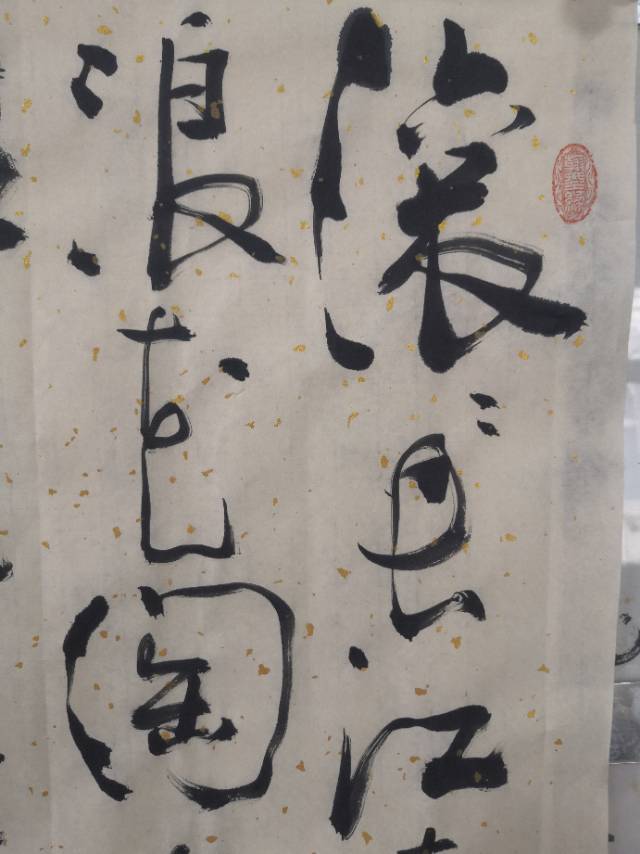 滚〻長江
浪花淘